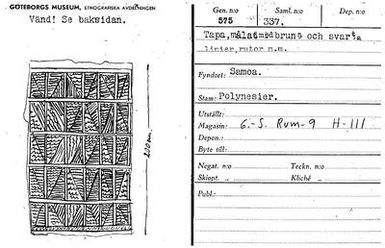 GÖTEBORGS MUSEUM, ETNOGRAFISKA AVDELNINGEN
Vänd! Se baksidan.
200 cm.
Gen. n:o Saml. n:o Dep. n:o
575 337.
Tapa, målat med brunt och svart,
linier, rutor m.m.
Fyndort: Samoa.
Stam: Polynesier.
Utställt:
Magasin: G.-S. Rum-9 H-III
Depon.:
Byte till:
Negat. n:o Teckn. n:o
Skiopt. „ Kliché „
Publ.: